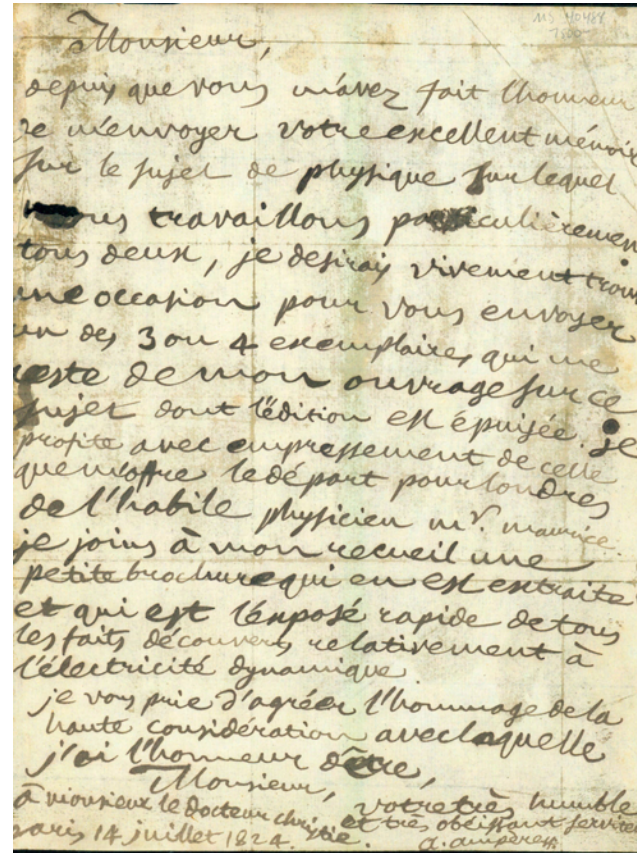 MS 40488
Monsieur,
depuis que vous m'avez fait l'honneur
de m'envoyer votre excellent mémoire
sur le sujet de physique sur lequel
nous travaillons particulièrement
tous deux, je desirais vivement trouv
une occasion pour vous envoyer
un des 3 ou 4 exemplaires qui me
reste de mon ouvrage sur ce
sujet dont l'édition est épuisée. je
profite avec empressement de celle
que m'offre le départ pour londres
de l'habile physicien mr. maurice.
je joins à mon recueil une
petite brochure qui en est extraite
et qui est l'exposé rapide de tous
les faits découverts relativement à
l'électricité dynamique.
je vous prie d'agréer l'hommage de la
haute considération avec laquelle
j'ai l'honneur d'être,
Monsieur, votre très humble
à monsieur le docteur christie. et très obéissant serviteu
paris 14 juillet 1824. a. ampère